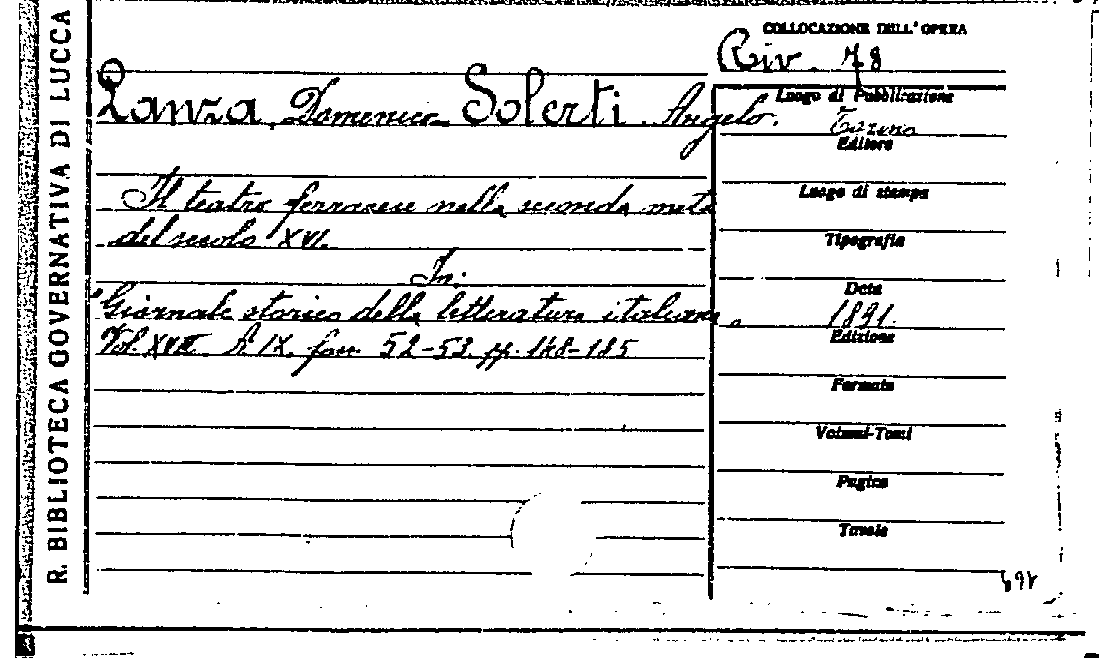 R. BIBLIOTECA GOVERNATIVA DI LUCCA
COLLOCAZIONE DELL'OPERA
Riv. 78
Lanza, Domenico Solerti Angelo.
Luogo di Pubblicazione
Torino
Editore
Il teatro ferrarese nella seconda metà
Luogo di stampa
del secolo XVI.
Tipografia
In:
Data
"Giornale storico della letteratura italiana"
1891.
Vol. XVIII A. IX. fasc. 52-53. pp. 148-185
Edizione
Formato
Volumi-Tomi
Pagine
Tavole